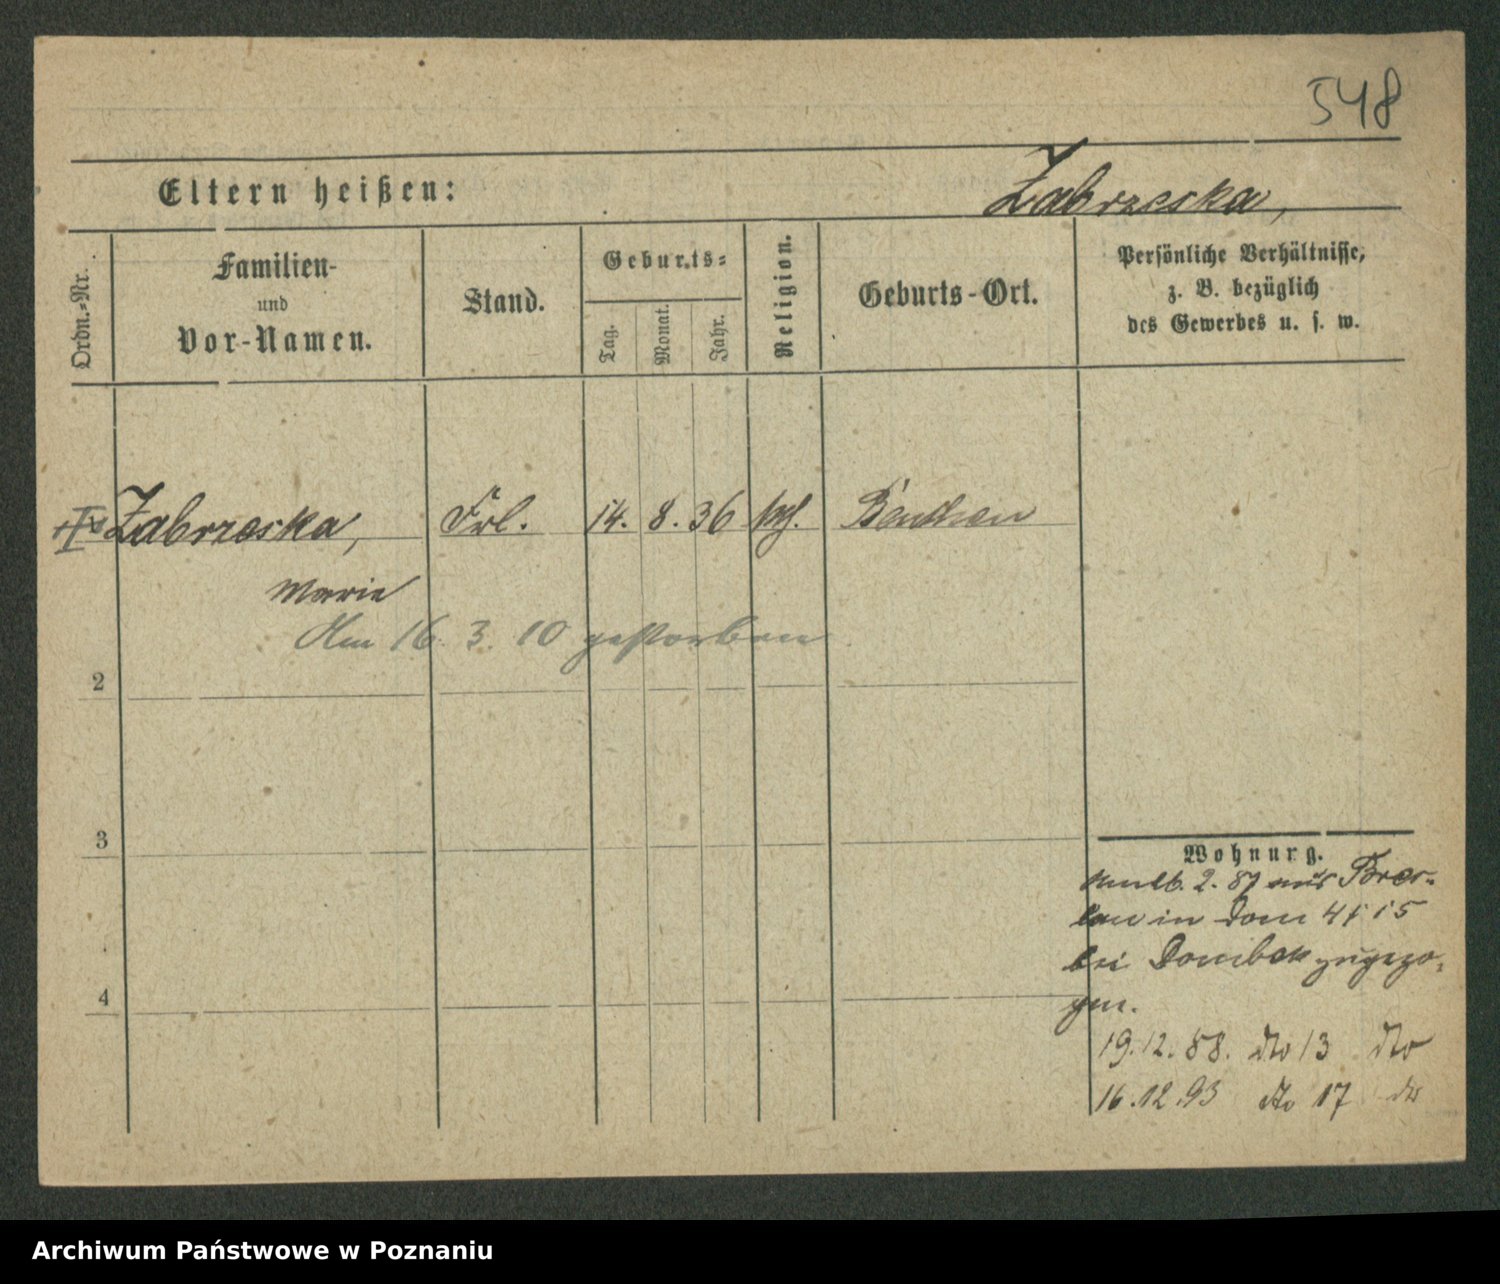 548
Eltern heißen:
Zabrzeska,
Ordn.-Nr.
Familien-
und
Vor-Namen.
Stand.
Geburts-
Tag.
Monat.
Jahr.
Religion.
Geburts-Ort.
Persönliche Verhältnisse,
z. B. bezüglich
des Gewerbes u. s. w.
Zabrzeska, Frl. 14. 8. 36 kth. Beuthen
Marie
Am 16. 3. 10 gestorben
2
3
4
Wohnung.
2. 87 aus Bres-
lau in Dom 4
bei Dombek zugezo-
gen.
19. 12. 88. dto 13 dto
16. 12. 93 dto 17 dto
Archiwum Państwowe w Poznaniu